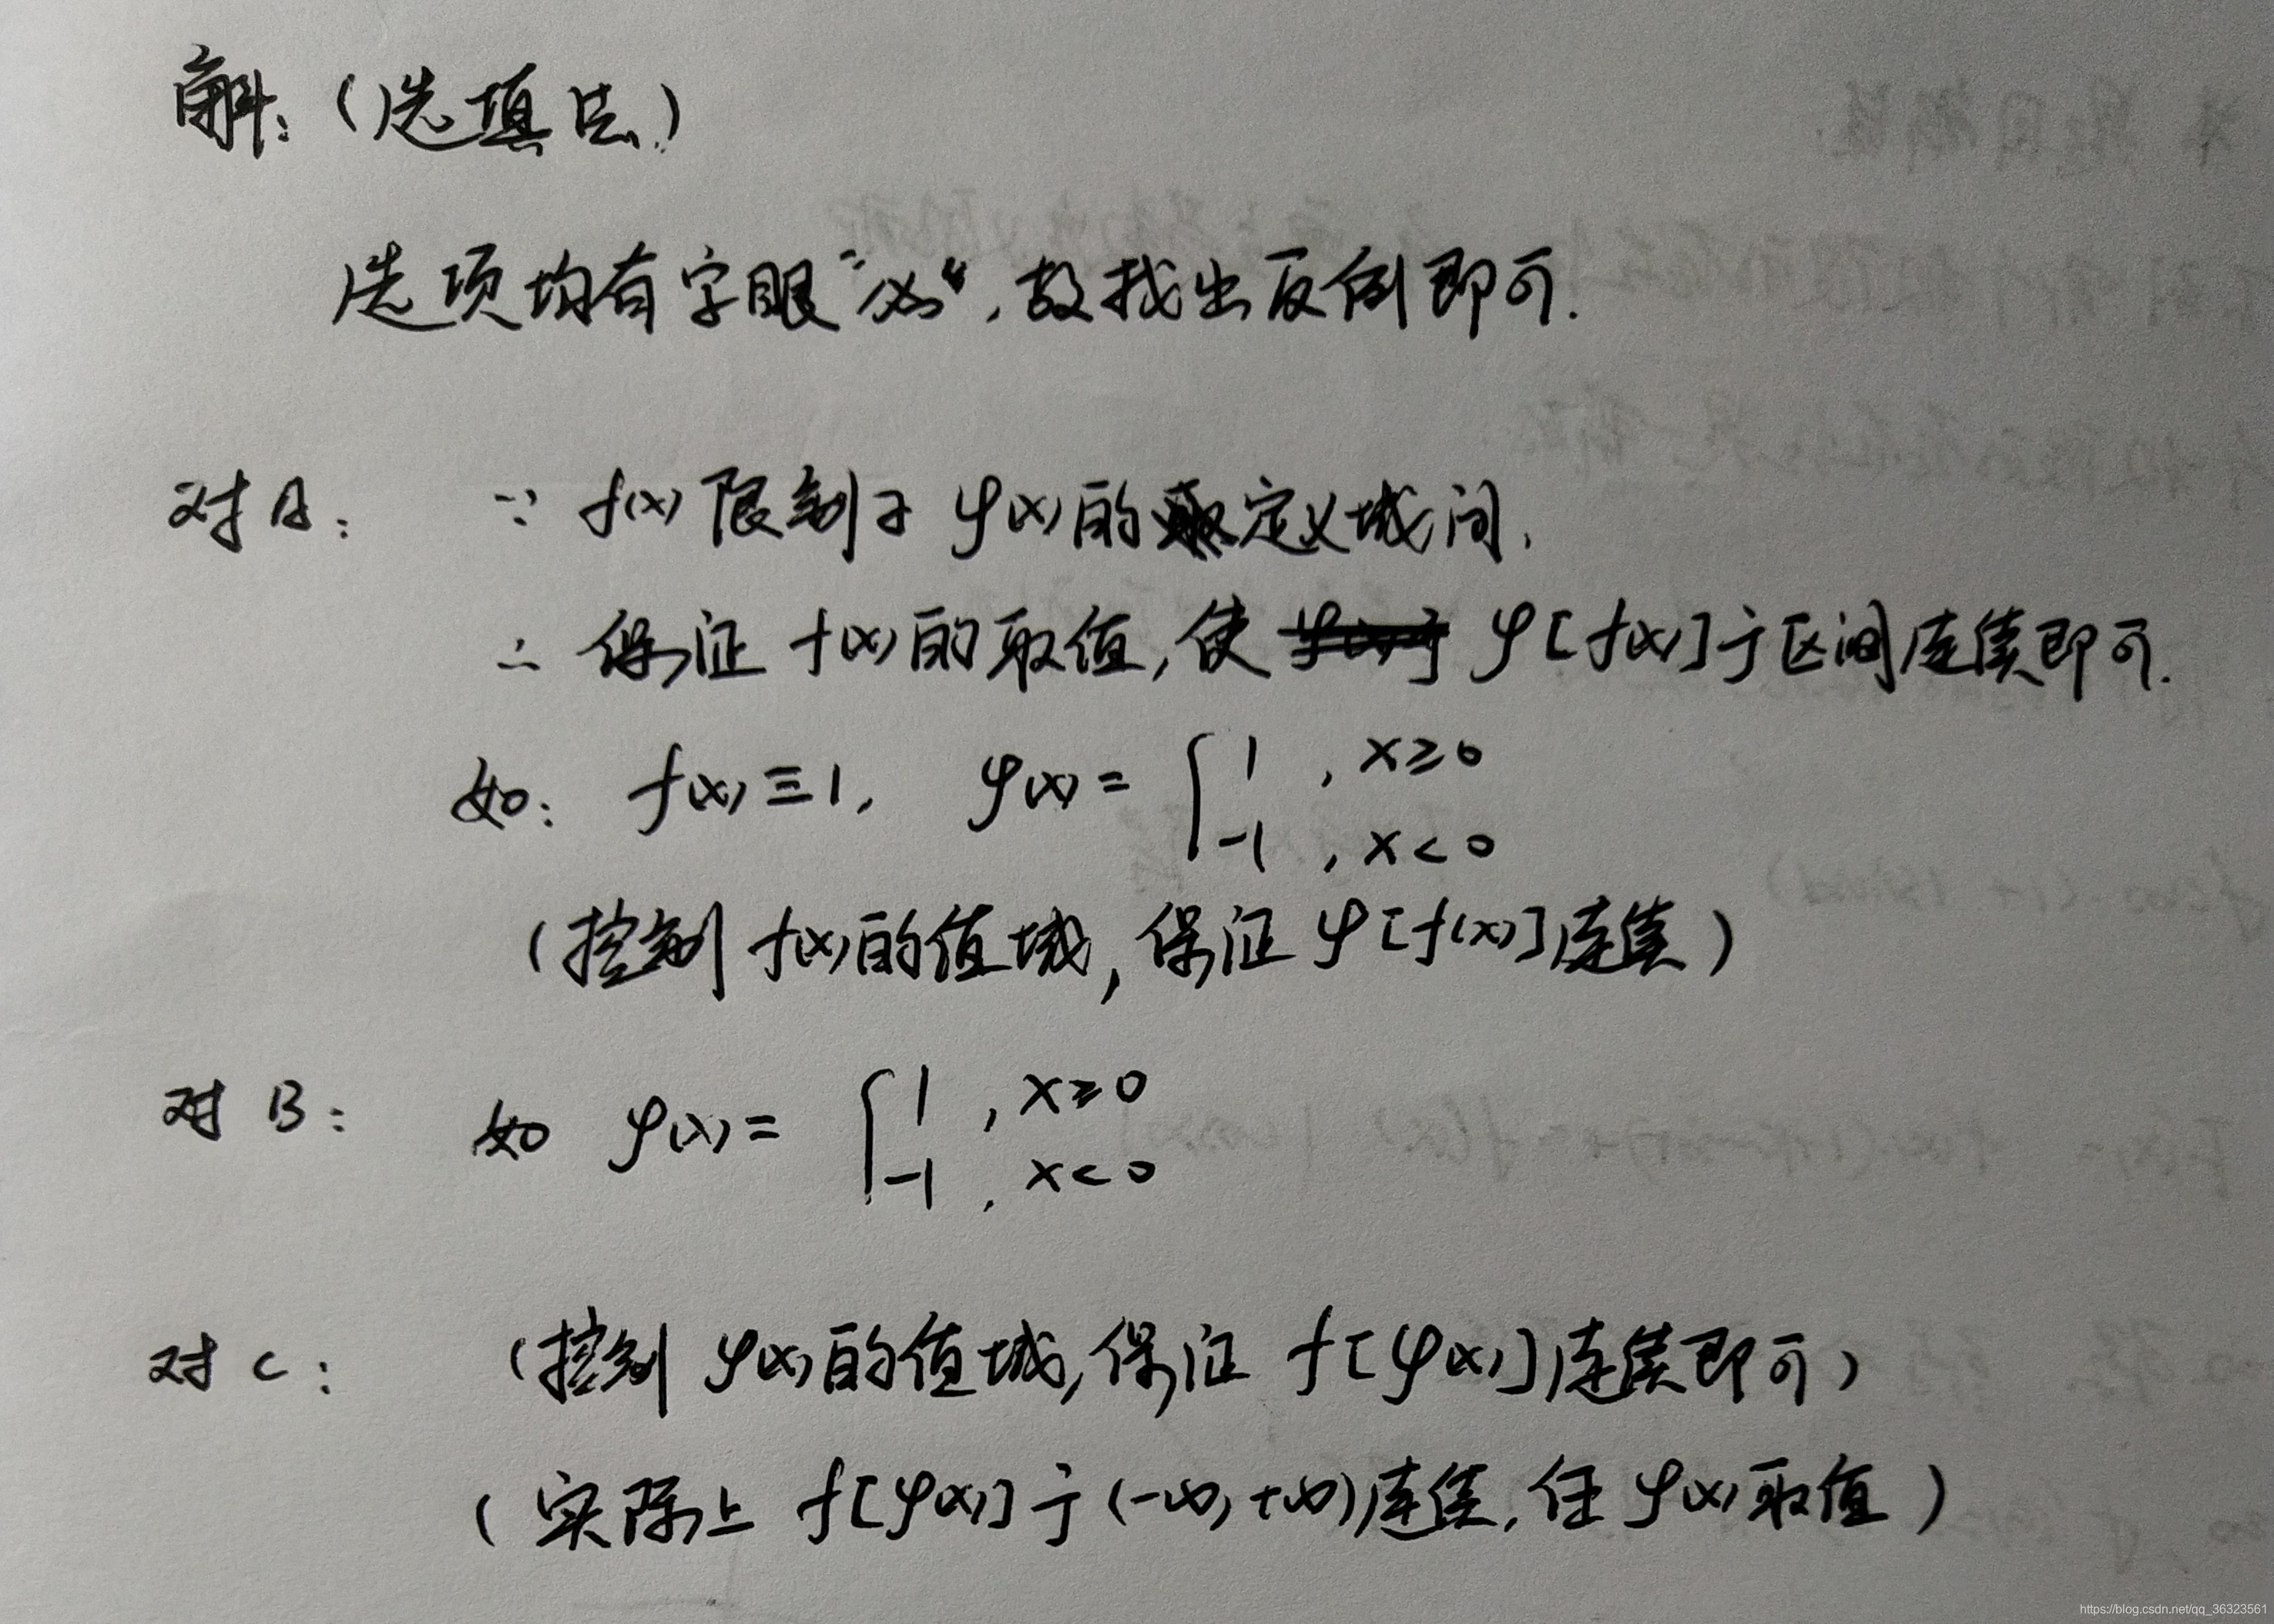 解：（选填法）
选项均有字眼“必”，故找出反例即可.
对A： ∵ f(x)限制于 φ(x)的定义域间,
∴ 保证 f(x)的取值,使 φ[f(x)]于区间连续即可.
如： f(x)≡1, φ(x)= { 1 , x≥0
-1 , x<0
（控制 f(x)的值域,保证 φ[f(x)]连续）
对B： 如 φ(x)= { 1 , x≥0
-1 , x<0
对C： （控制 φ(x)的值域,保证 f[φ(x)]连续即可）
（实际上 f[φ(x)]于(-∞,+∞)连续,任 φ(x)取值）
https://blog.csdn.net/qq_36323561